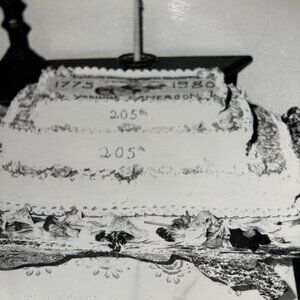 1775 1980
CAMEROON
205th
205th